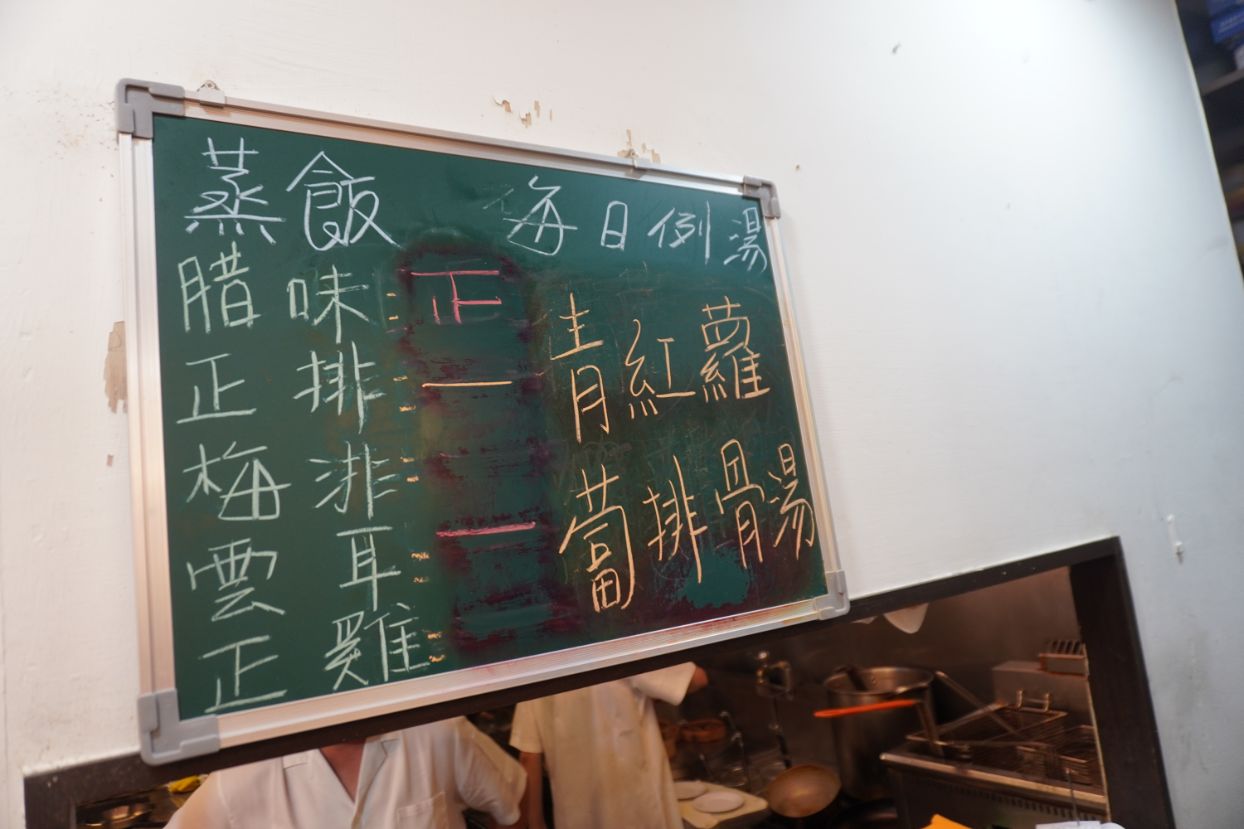 蒸飯
腊味：正
正排：一
梅渄：
雲耳：一
正雞：
每日例湯
青紅蘿
蔔排骨湯